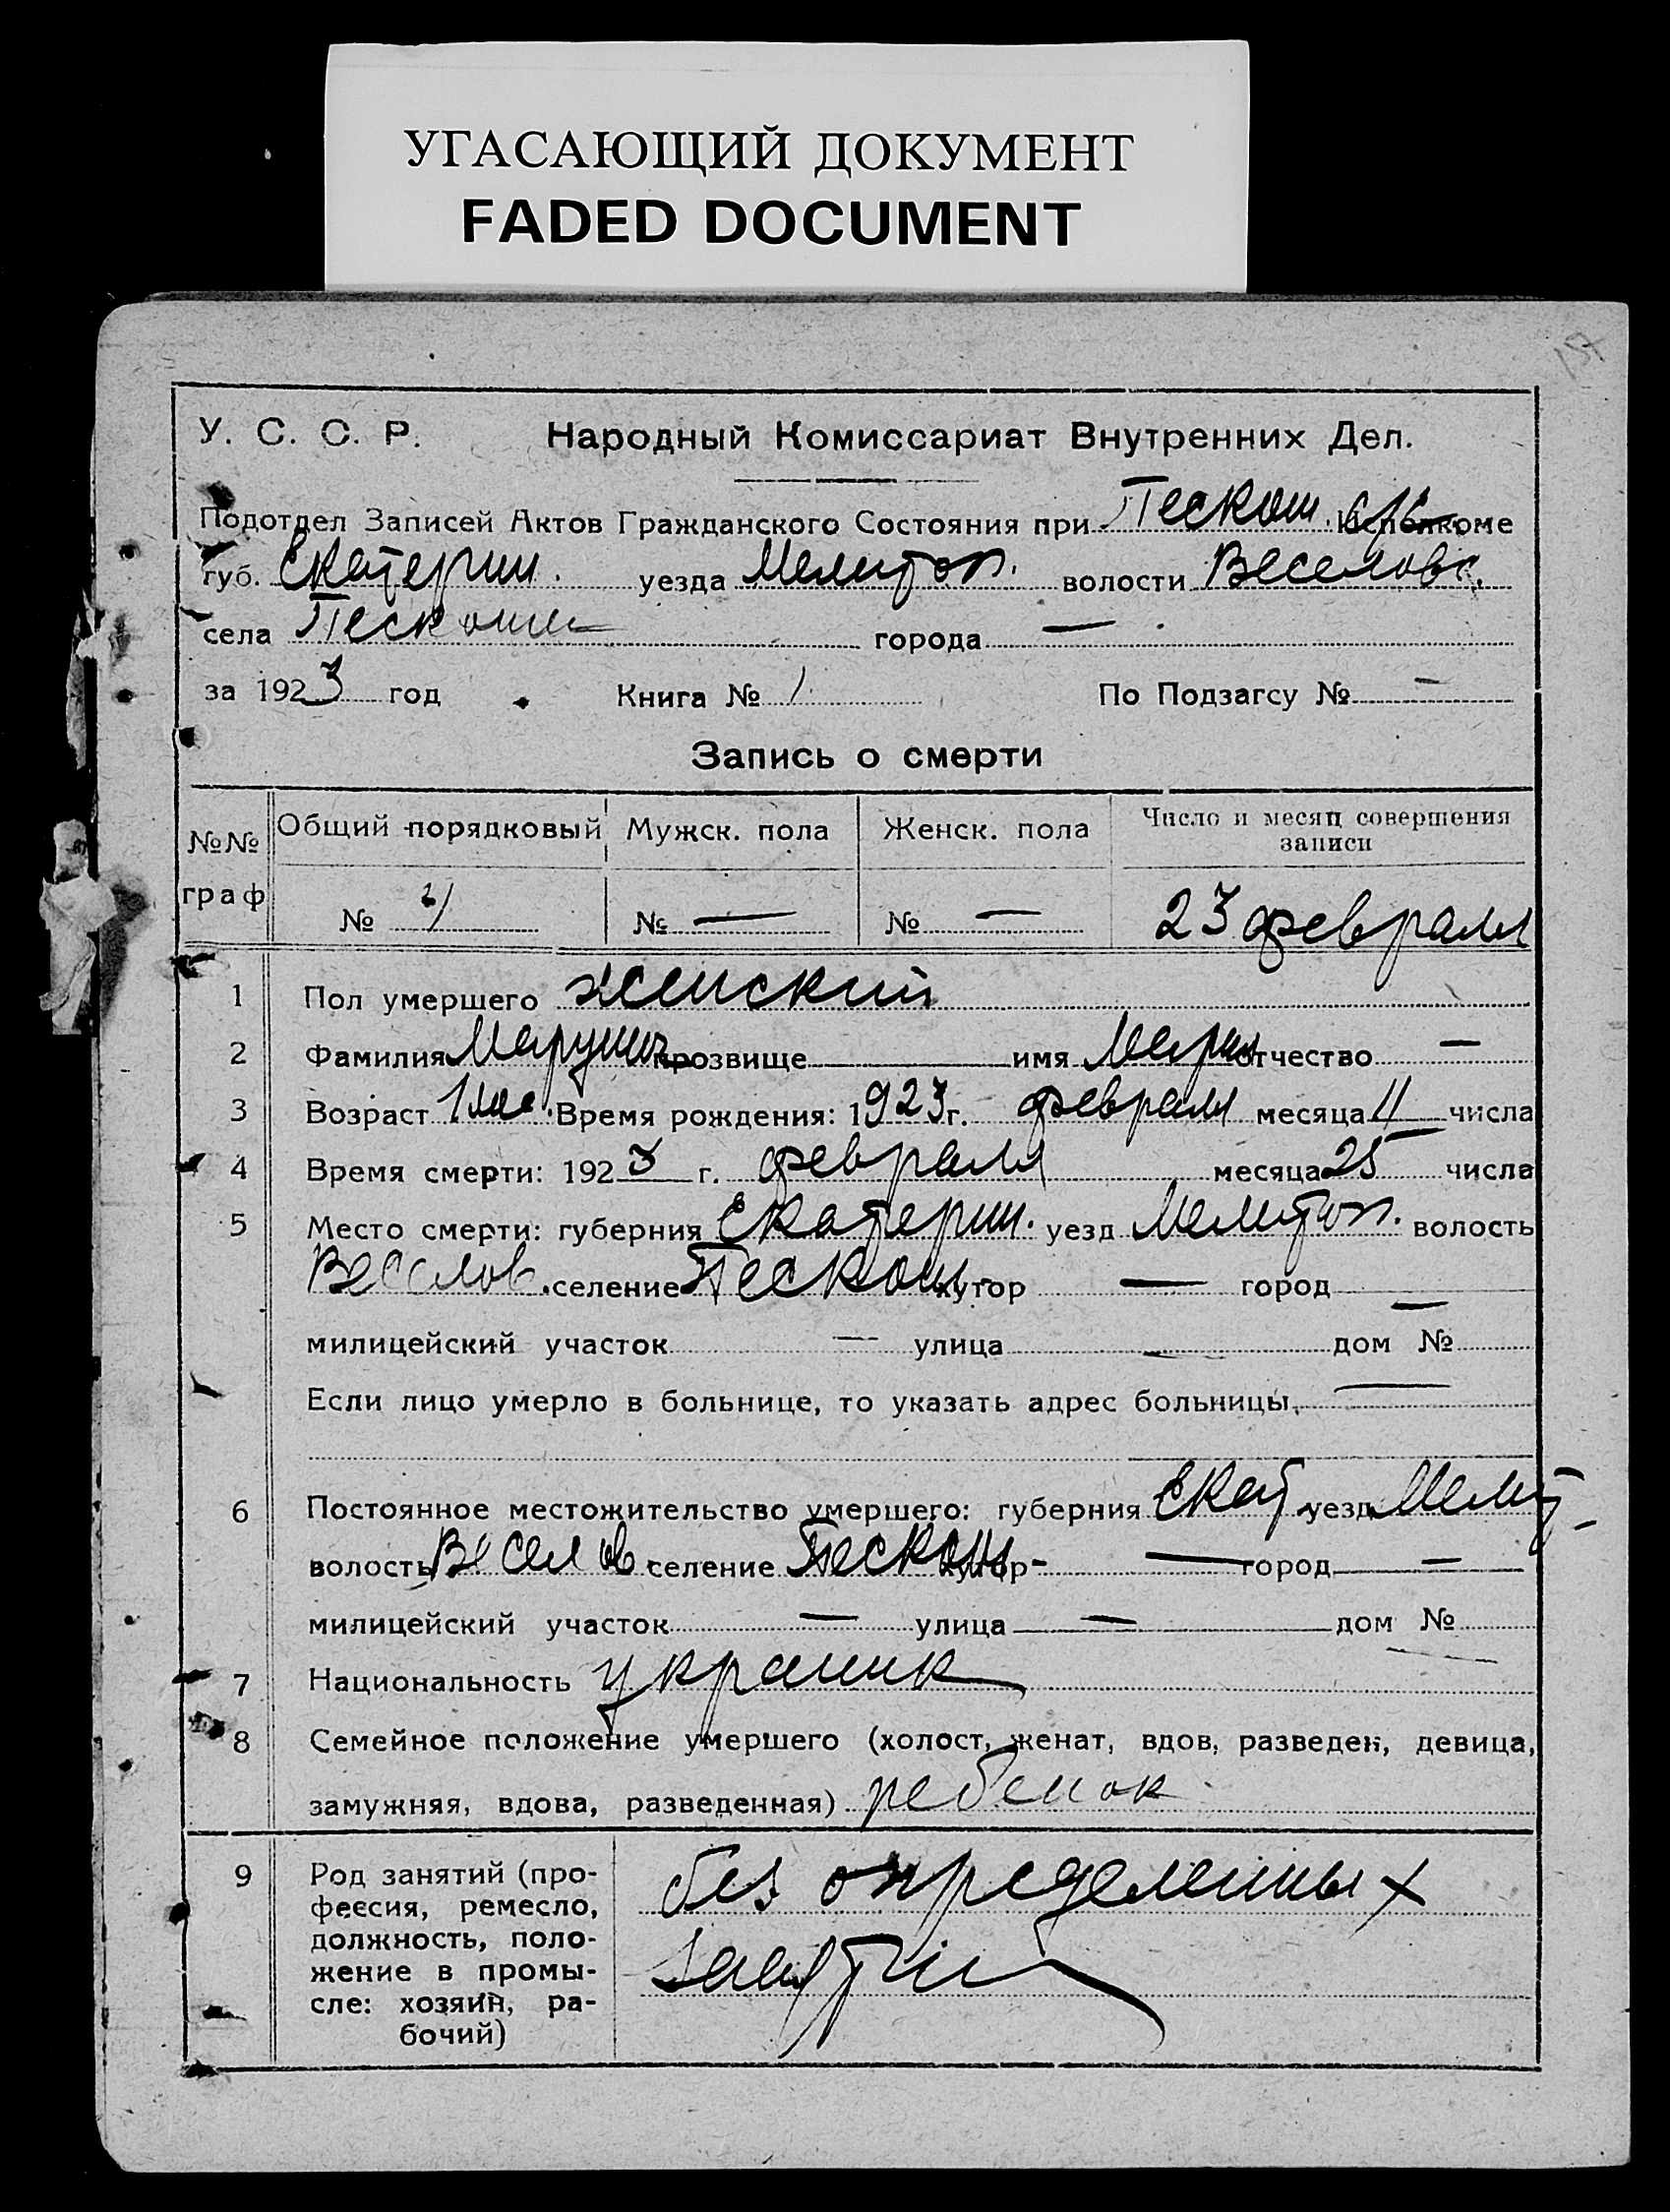 УГАСАЮЩИЙ ДОКУМЕНТ
FADED DOCUMENT
У. С. С. Р. Народный Комиссариат Внутренних Дел.
Подотдел Записей Актов Гражданского Состояния при Пескош. Исполкоме
губ. Екатерин. уезда Мелитоп. волости Веселовс.
села Пескоши города —
за 1923 год Книга № 1 По Подзагсу № —
Запись о смерти
№№ граф Общий порядковый Мужск. пола Женск. пола Число и месяц совершения записи
№ № — № — 23 февраля
1 Пол умершего женский
2 Фамилия прозвище имя отчество —
3 Возраст Время рождения: 1923 г. февраля месяца 11 числа
4 Время смерти: 1923 г. февраля месяца 25 числа
5 Место смерти: губерния Екатерин. уезд Мелитоп. волость
Веселов. селение Пескош. хутор — город —
милицейский участок — улица — дом №
Если лицо умерло в больнице, то указать адрес больницы, —
6 Постоянное местожительство умершего: губерния Екат. уезд Мелит
волость Веселов. селение Пескош хутор — город —
милицейский участок — улица — дом № —
7 Национальность украинк
8 Семейное положение умершего (холост, женат, вдов, разведен, девица,
замужняя, вдова, разведенная) ребенок
9 Род занятий (про-
фессия, ремесло,
должность, поло-
жение в промы-
сле: хозяин, ра-
бочий)
без определенных